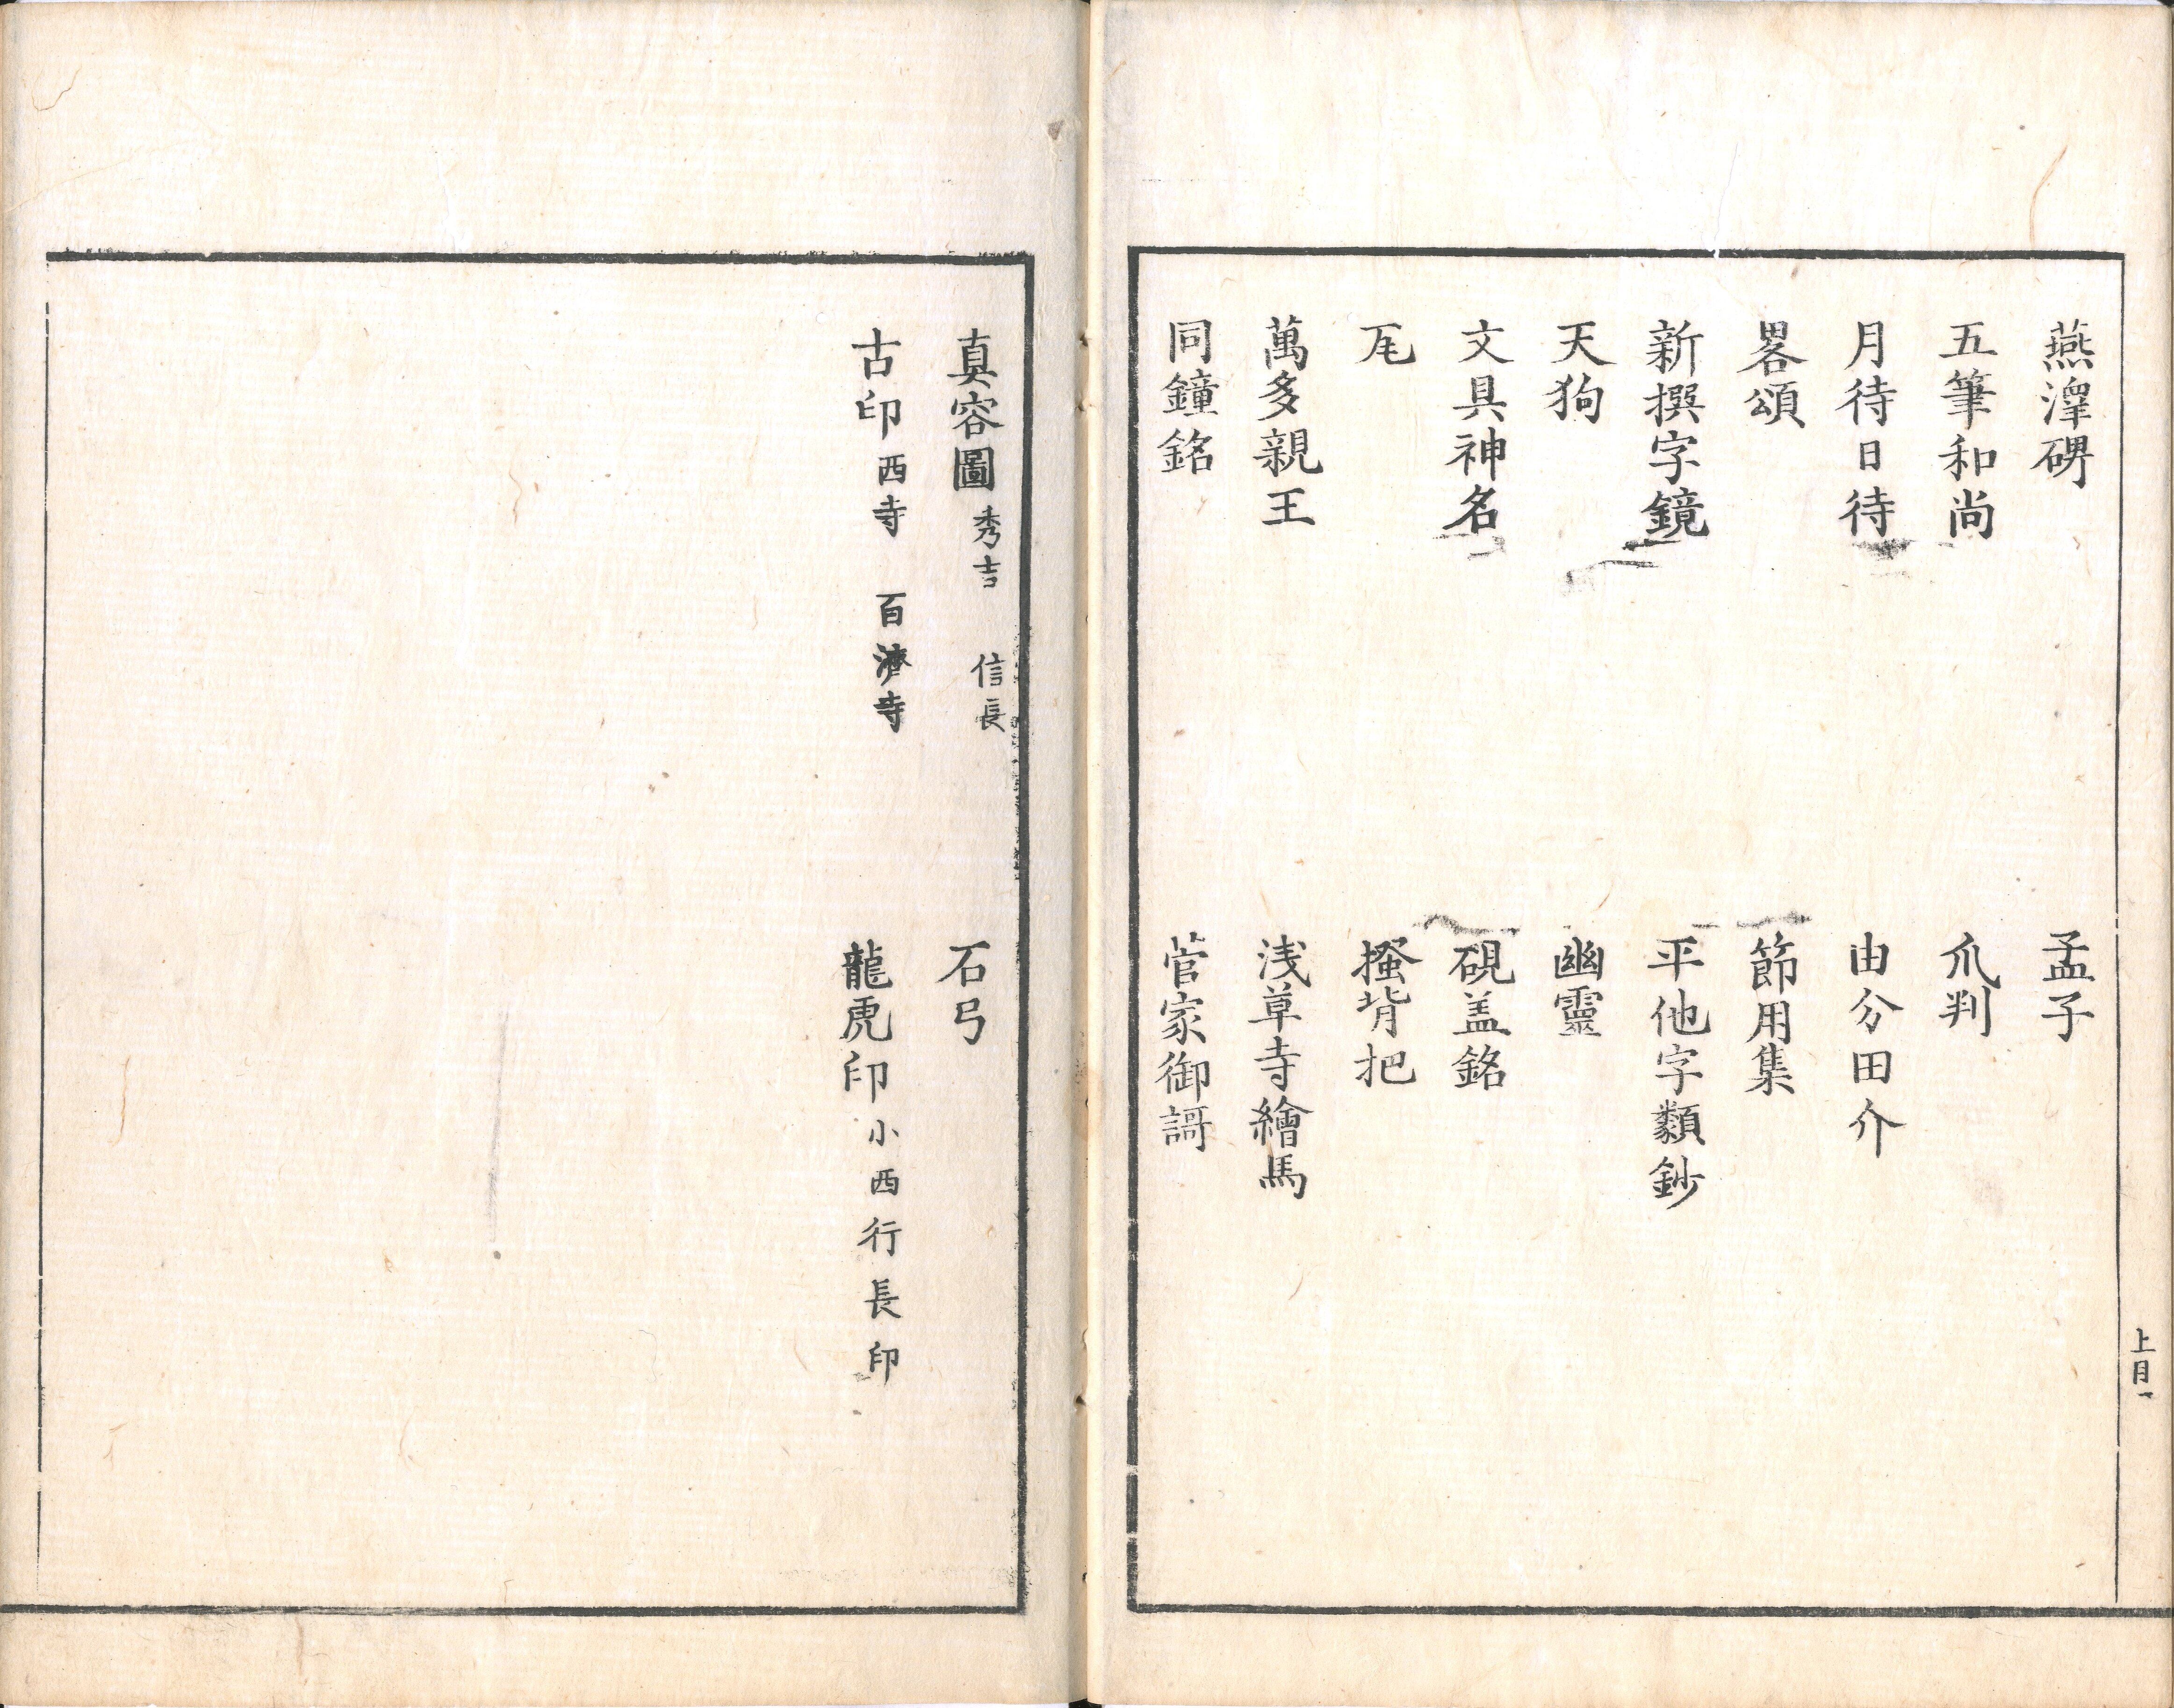 燕澤碑　孟子
五筆和尚　爪判
月待日待　由分田介
畧頌　節用集
新撰字鏡　平他字類鈔
天狗　幽靈
文具神名　硯盖銘
瓦　搔背把
萬多親王　浅草寺繪馬
同鐘銘　菅家御謌
上目一
真容圖　秀吉　信長　石弓
古印　西寺　百濟寺　龍虎印　小西行長印